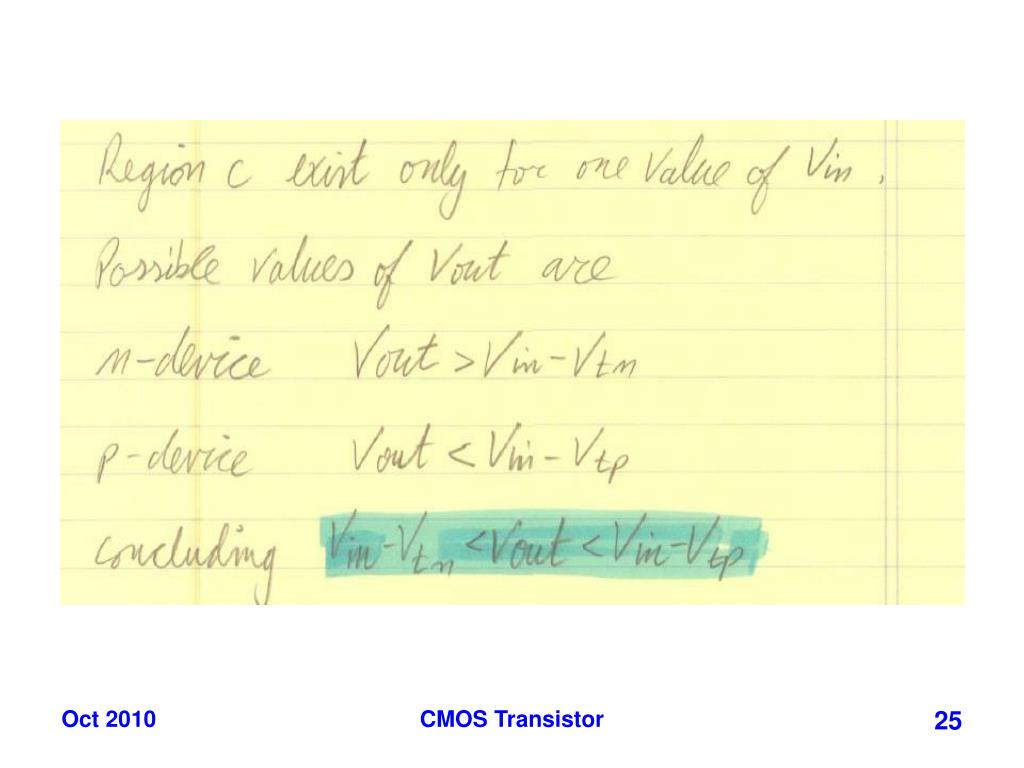 Region C exist only for one value of Vin.
Possible values of Vout are
n-device Vout > Vin - Vtn
p-device Vout < Vin - Vtp
concluding Vin - Vtn < Vout < Vin - Vtp
Oct 2010 CMOS Transistor 25